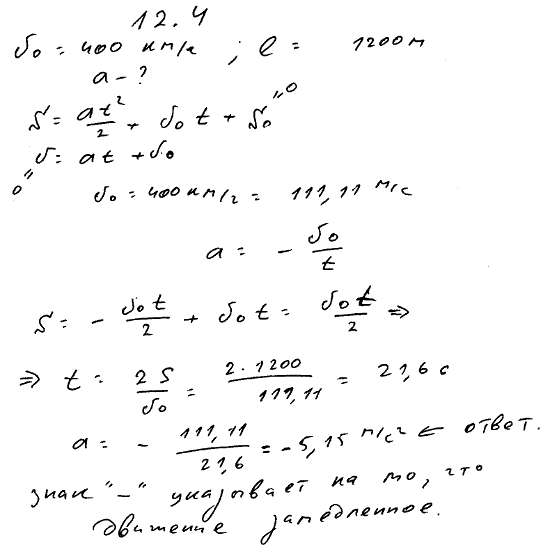 12.4
υ₀ = 400 км/ч ; l = 1200 м
a - ?
S = at²/2 + υ₀t + S₀ "0
υ = at + υ₀
0"
υ₀ = 400 км/г = 111,11 м/с
a = - υ₀/t
S = - υ₀t/2 + υ₀t = υ₀t/2 ⇒
⇒ t = 2S/υ₀ = 2·1200/111,11 = 21,6 с
a = - 111,11/21,6 = -5,15 м/с² ← ответ.
знак "-" указывает на то, что
движение замедленное.